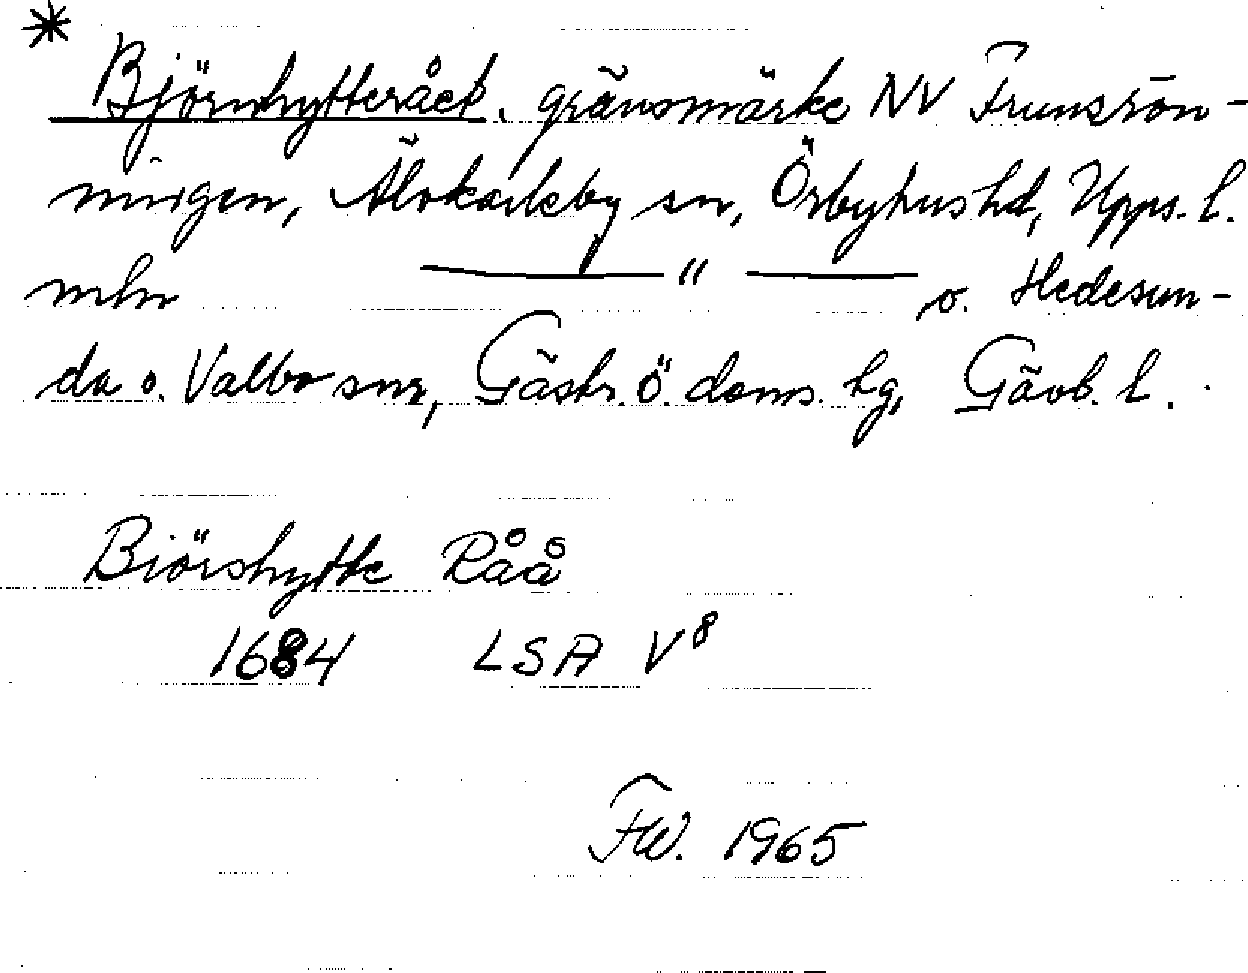 *
Björnhytteråck, gränsmärke NV Frunsrön-
ningen, Älvkarleby sn, Örbyhus hd, Upps. l.
mln —— " —— o. Hedesun-
da o. Valbo snr, Gästr. ö. doms. lg, Gävb. l.
Biörshytte Råå
1684 LSA V8
FW. 1965